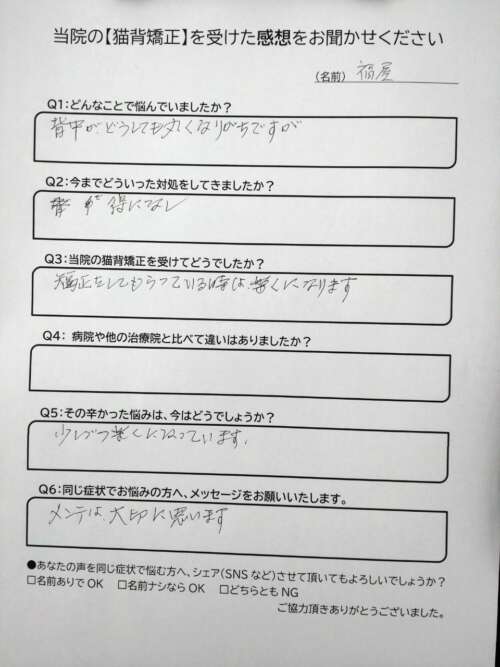 当院の【猫背矯正】を受けた感想をお聞かせください
(名前) 福屋
Q1:どんなことで悩んでいましたか?
背中が、どうしても丸くなりがちですが
Q2:今までどういった対処をしてきましたか?
得になし
Q3:当院の猫背矯正を受けてどうでしたか?
矯正をしてもらっている時は、楽になります
Q4: 病院や他の治療院と比べて違いはありましたか?
Q5:その辛かった悩みは、今はどうでしょうか?
少しづつ楽になっています。
Q6:同じ症状でお悩みの方へ、メッセージをお願いいたします。
メンテは、大切に思います
●あなたの声を同じ症状で悩む方へ、シェア(SNSなど)させて頂いてもよろしいでしょうか?
□名前ありでOK □名前ナシならOK □どちらともNG
ご協力頂きありがとうございました。